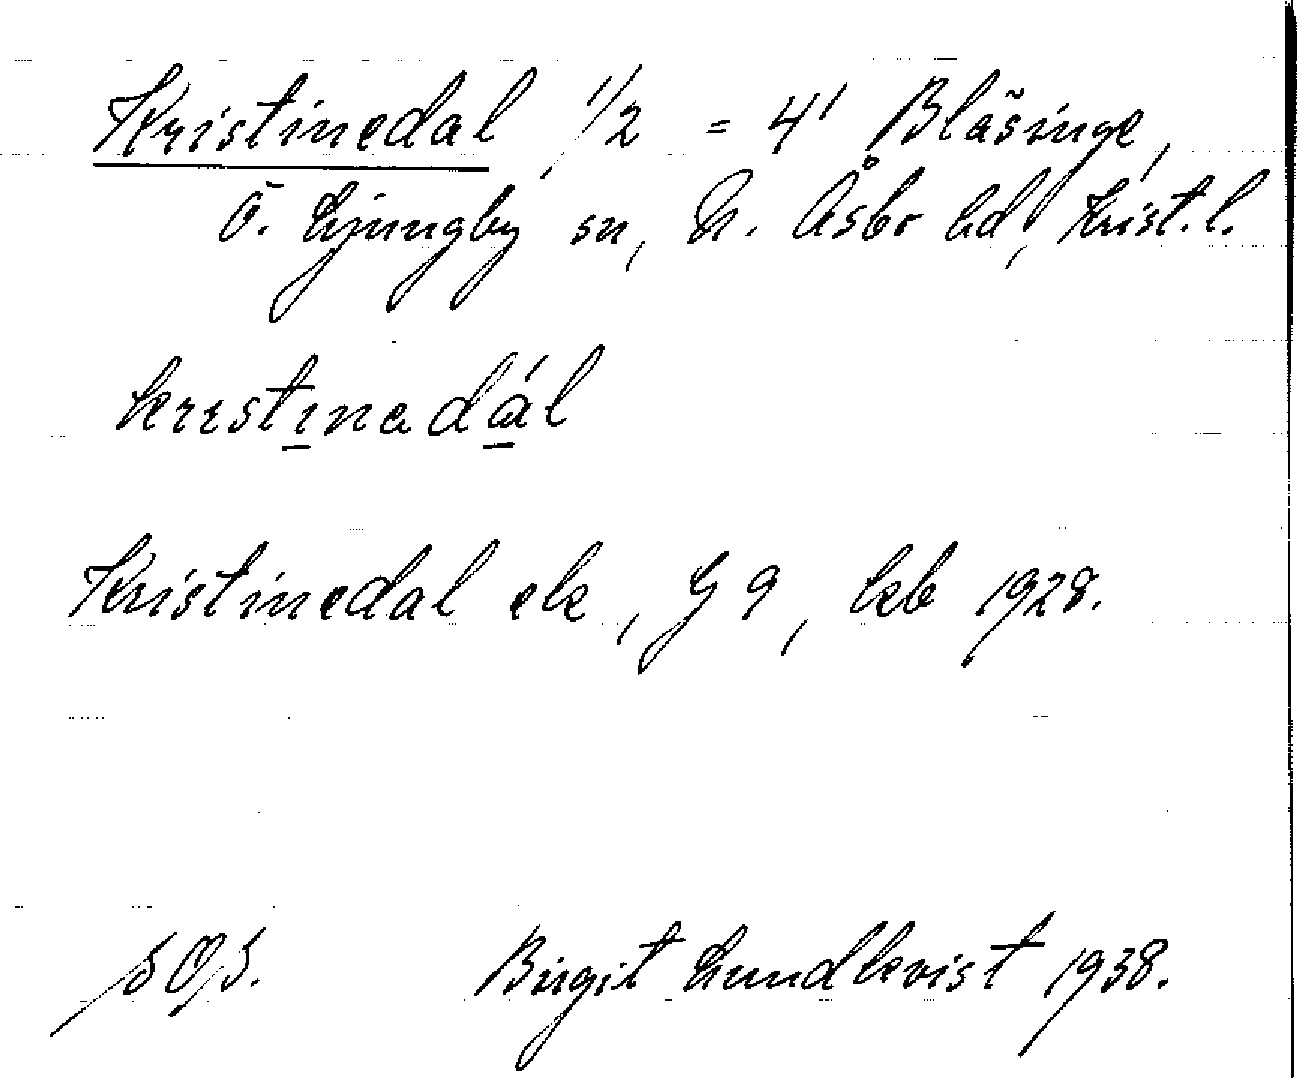 Kristinedal 1/2 = 4' Bläsinge,
Ö. Ljungby sn, N. Åsbo hd, Krist. l.
kristinadál
Kristinedal ek, G 9, kb 1928.
Birgit Lundkvist 1938.